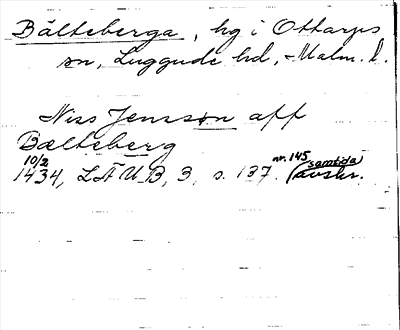 Bälteberga, hg i Ottarps
sn, Luggude hd, Malm. l.
Niss Jensson aff
Bælteberg
10/2 1434, LÄUB, 3, s. 137. nr. 145 (samtida avskr.